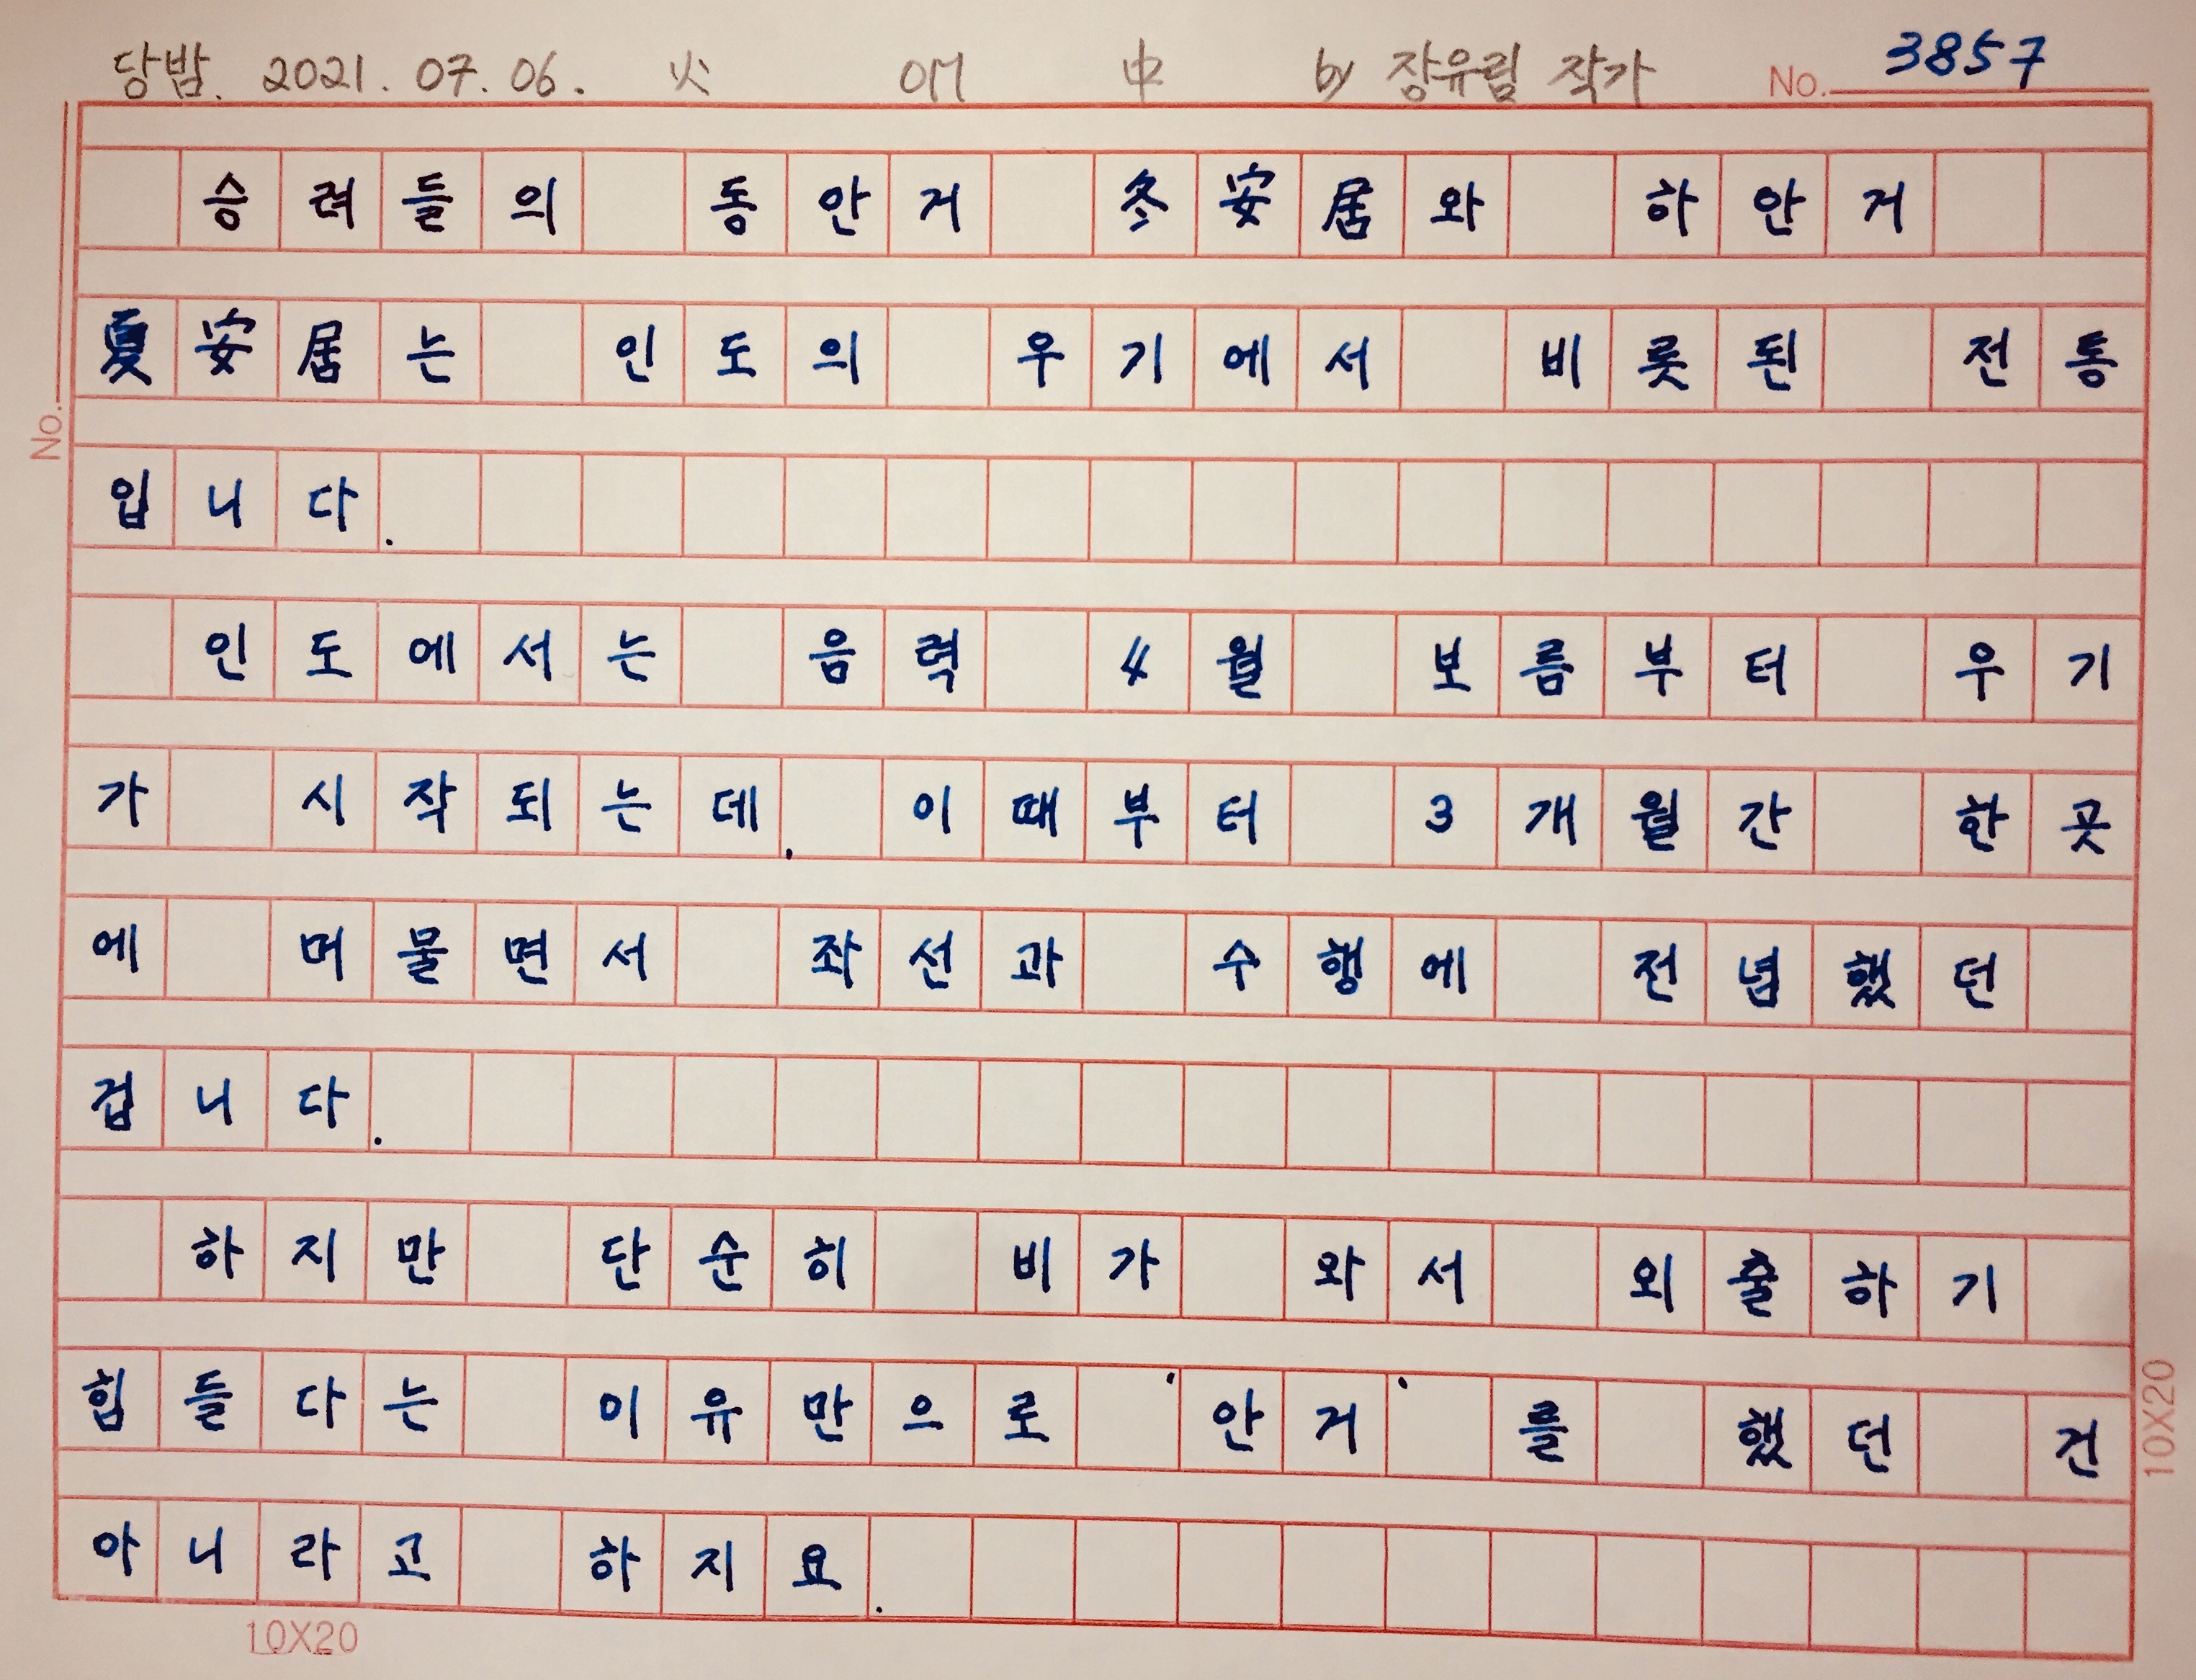 당밤. 2021. 07. 06. 火 애 中 by 장유림 작가 No. 3857
승려들의 동안거 冬安居와 하안거
夏安居는 인도의 우기에서 비롯된 전통
입니다.
인도에서는 음력 4월 보름부터 우기
가 시작되는데. 이때부터 3개월간 한곳
에 머물면서 좌선과 수행에 전념했던
겁니다.
하지만 단순히 비가 와서 외출하기
힘들다는 이유만으로 '안거'를 했던 건
아니라고 하지요.
No.
10X20
10X20